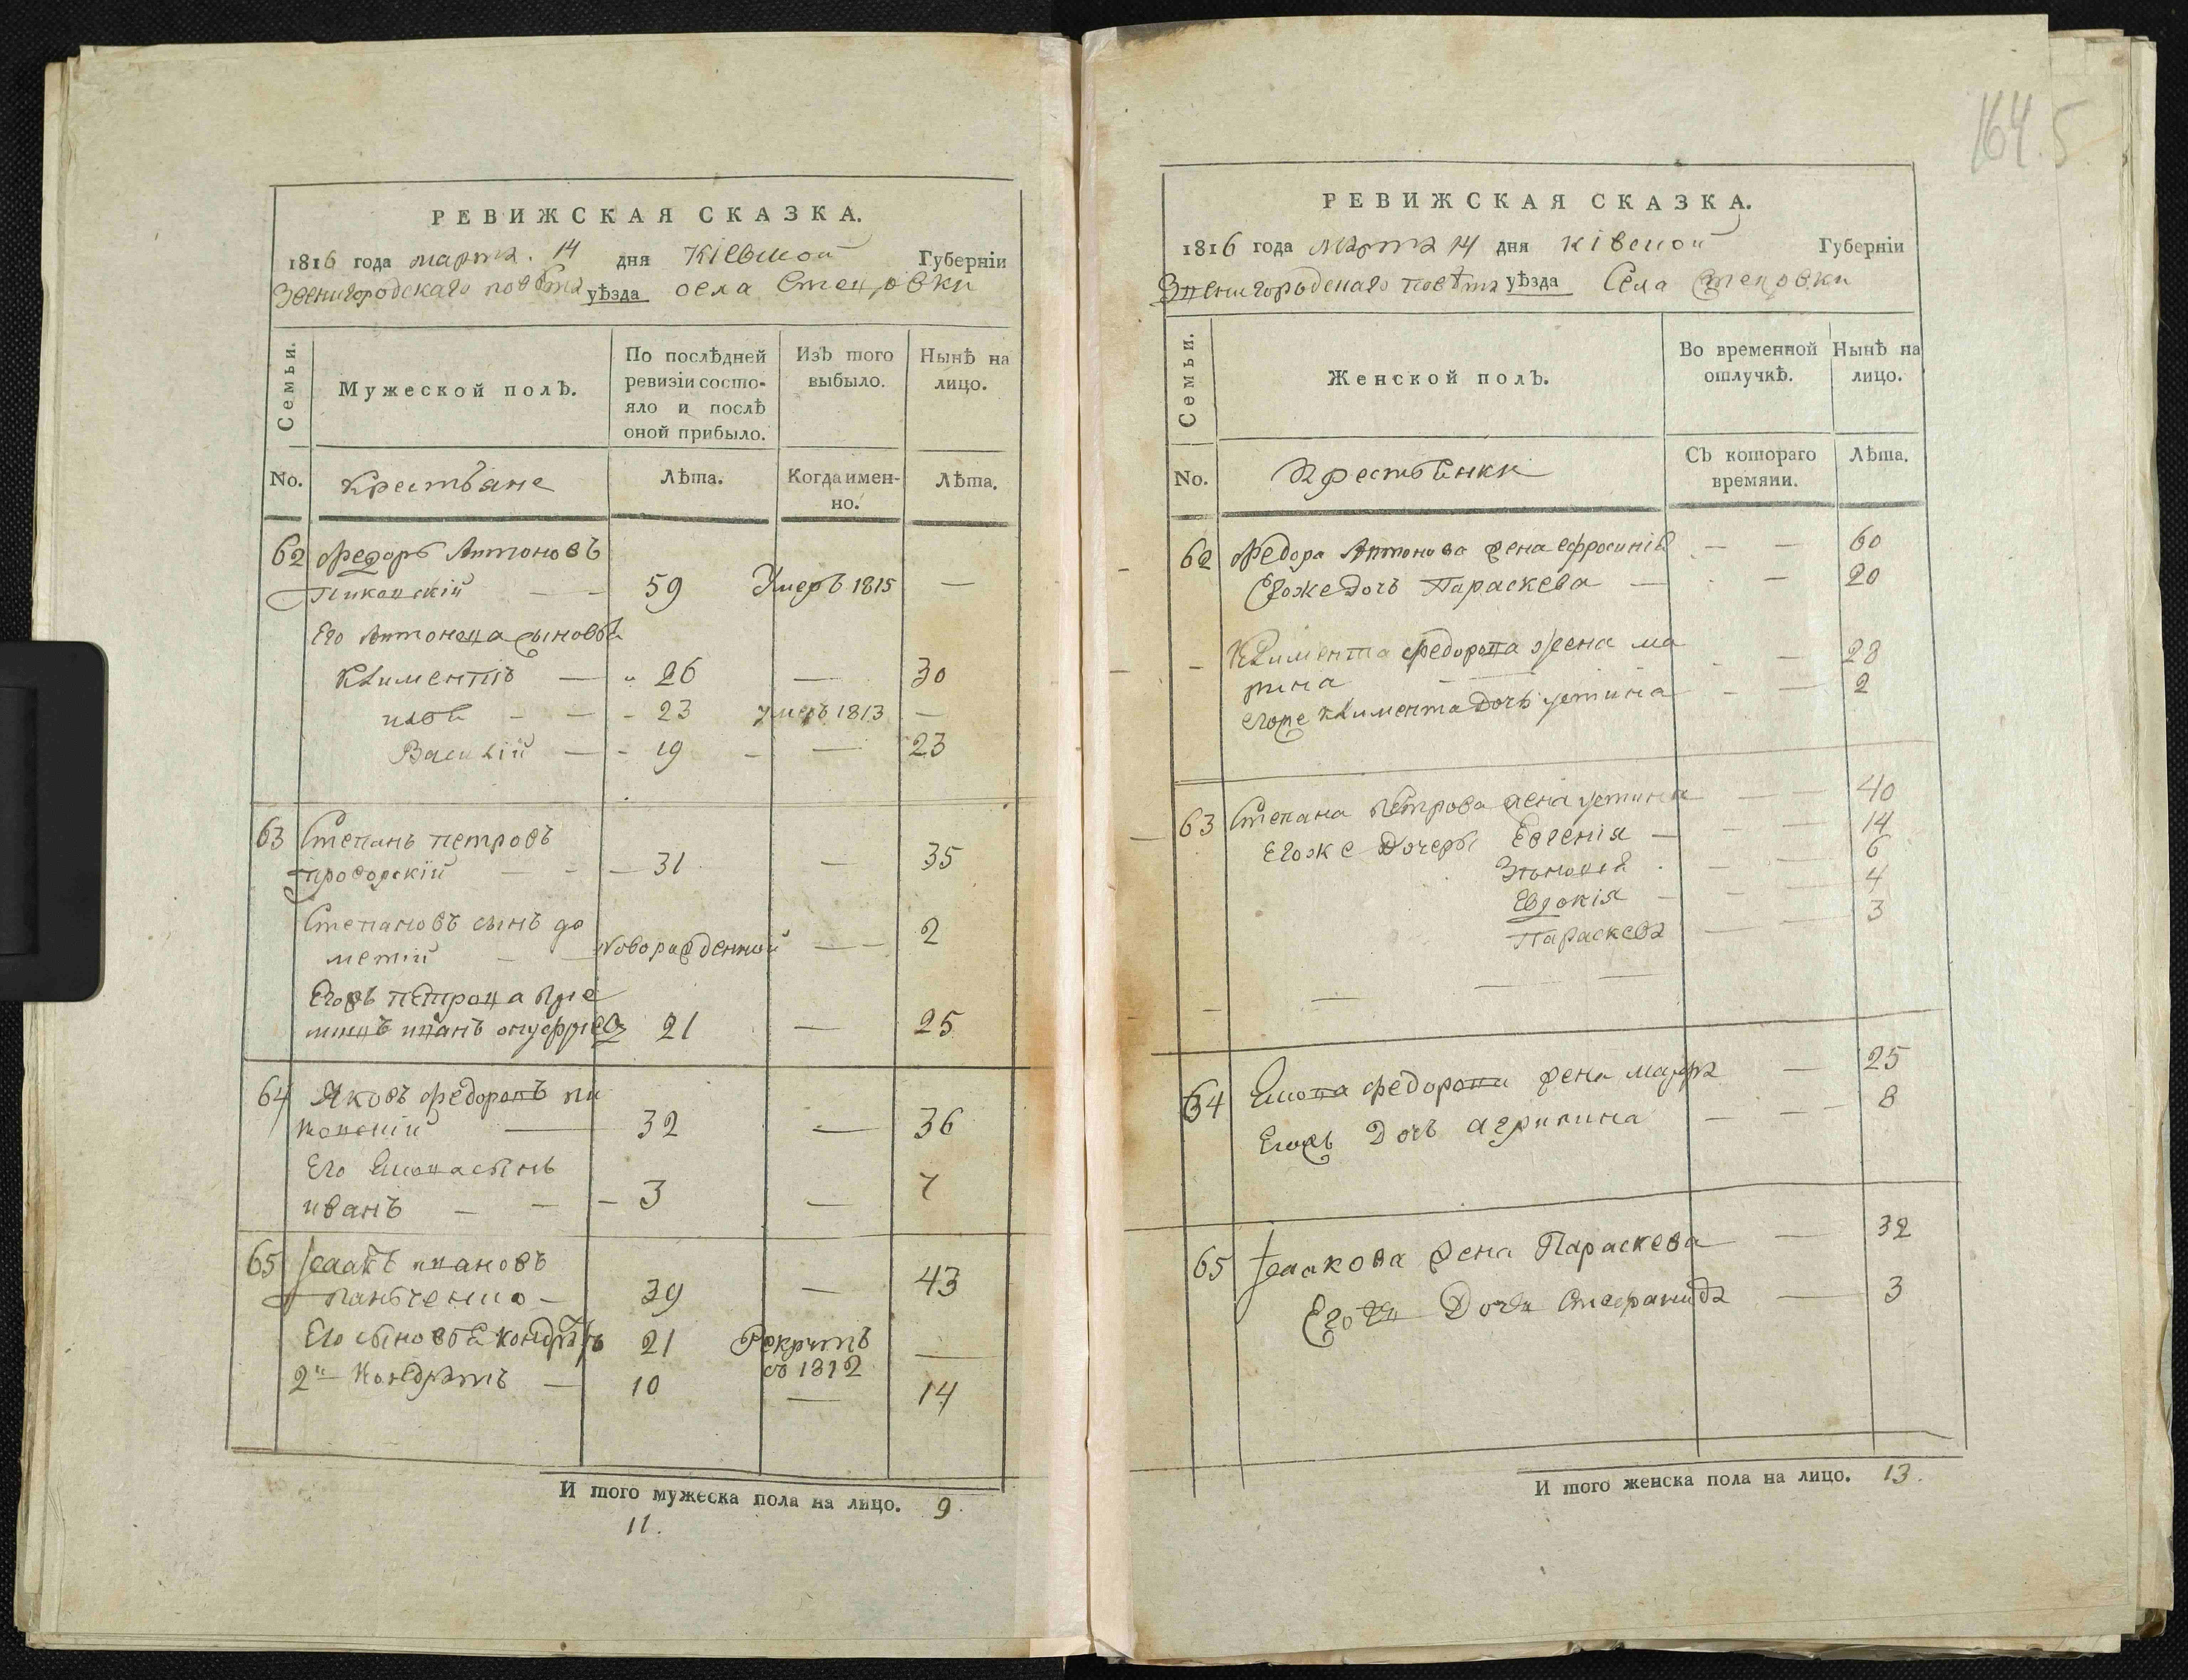 164.5
РЕВИЖСКАЯ СКАЗКА.
1816 года марта. 14 дня Кіевской Губерніи
Звенигородскаго повѣта уѣзда села Стецовки
Семьи.
Мужеской полЪ.
По послѣдней ревизіи состояло и послѣ оной прибыло.
ИзЪ того выбыло.
Нынѣ на лицо.
No.
Крестьяне
Лѣта.
Когда именно.
Лѣта.
62 Федоръ Антоновъ
59 Умеръ 1815 —
Его сыновья
Климентій — 26 — 30
— 23 умеръ 1813 —
Василій — 19 — 23
63 Степанъ петровъ
— 31 — 35
Степановъ сынъ до
метій — новорожденной — 2
Егожъ петрова пле
мянъ иванъ онуфріевъ 21 — 25
64 Яковъ федоровъ пи
— 32 — 36
Его Якова сынъ
иванъ — 3 — 7
65 Исаакъ ивановъ
Панченко — 39 — 43
Его сыновья кондратъ 21 Рекрутъ въ 1812 —
2й Кондратъ — 10 — 14
И того мужеска пола на лицо. 9.
11.
РЕВИЖСКАЯ СКАЗКА.
1816 года марта 14 дня Кіевской Губерніи
Звенигородскаго повѣта уѣзда Села Стецовки
Семьи.
Женской полЪ.
Во временной отлучкѣ.
Нынѣ на лицо.
No.
Крестьянки
СЪ котораго времяни.
Лѣта.
62 Федора Антонова жена ефросинія — — 60
Егоже Дочь Параскева — — 20
Климента федорова жена ма
рина — 28
егоже климента дочь устина — 2
63 Степана Петрова жена устина — — 40
Егоже Дочеры Евгенія — — 14
— 6
Евдокія — — 4
Параскева — — 3
64 Якова федорова жена — 25
Егожъ Дочь агрипина — — 8
65 Исаакова жена Параскева — 32
Его Дочь Стефанида — 3
И того женска пола на лицо. 13.